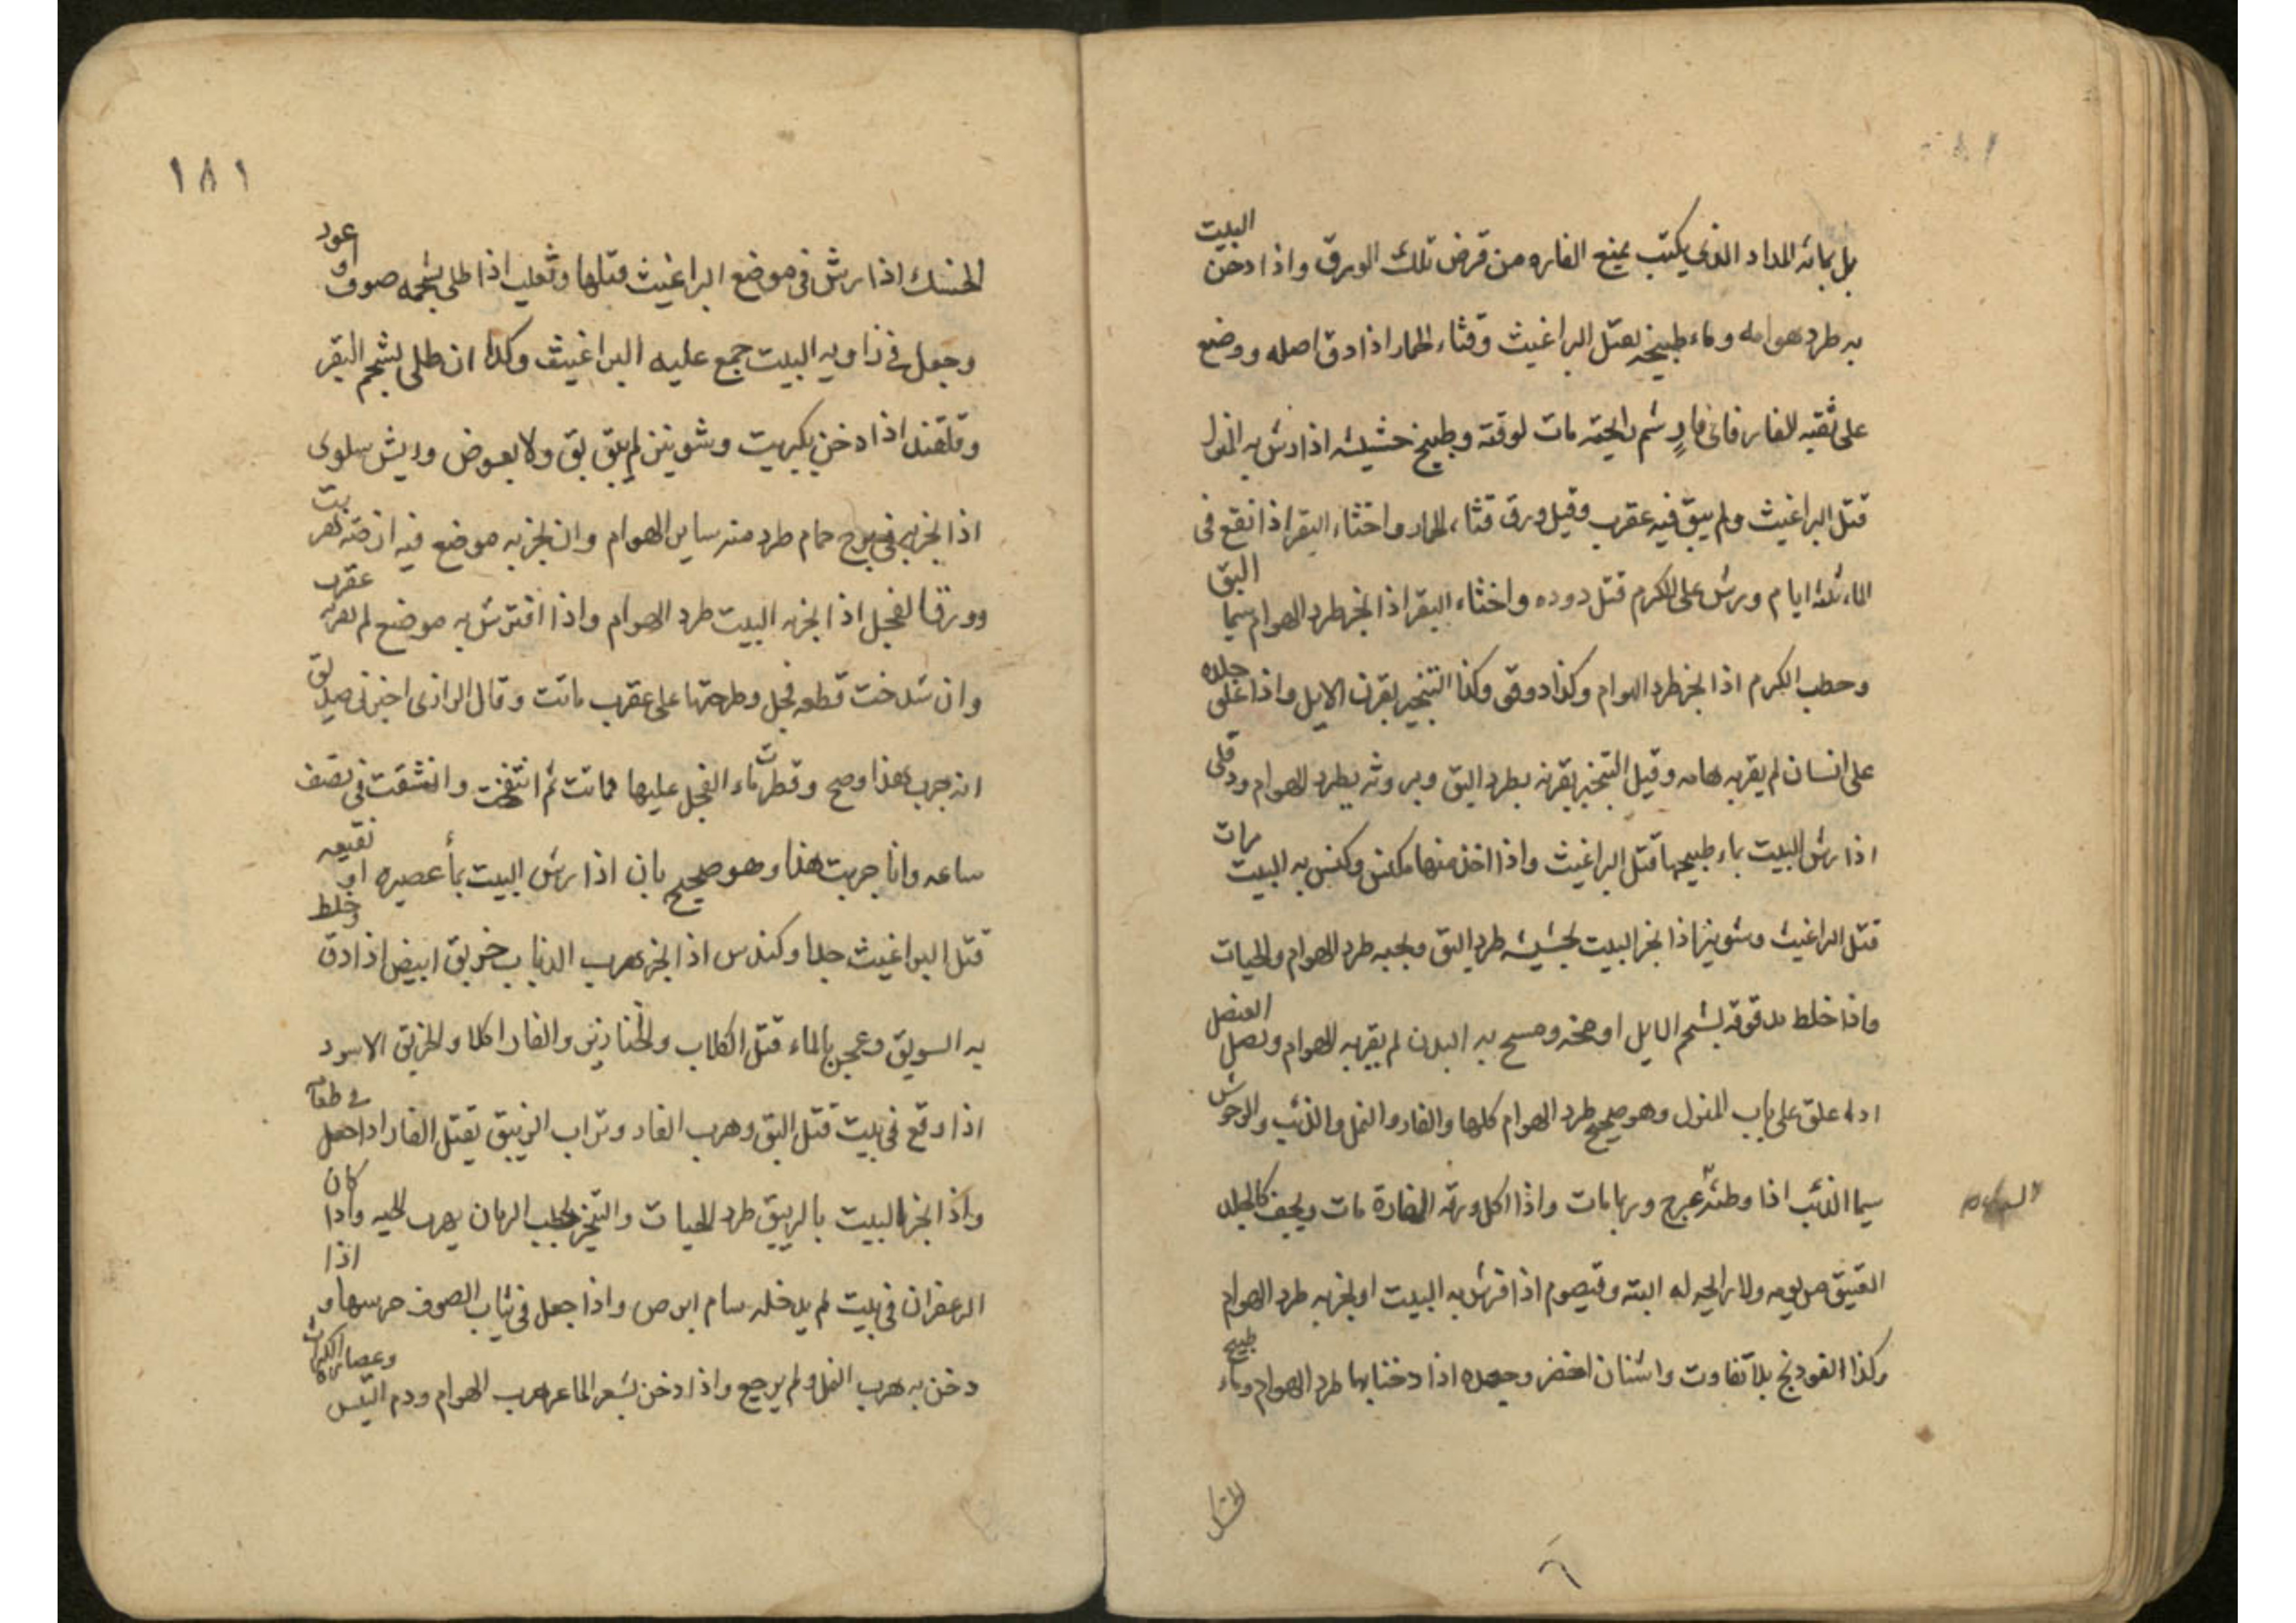 بل بمائه المداد الذى يكتب يمنع الفاره من قرض تلك الورق واذا دخن البيت
به طرد هوامه وماء طبيخه يقتل البراغيث وقثاء الحمار اذا دق اصله ووضع
على ثقبه للفار فاى فار شم رايحته مات لوقته وطبيخ حشيشه اذا رش به المنزل
قتل البراغيث ولم يبق فيه عقرب وقيل ورق قثاء الحمار واخثاء البقر اذا نقع فى
الماء ثلثه ايام ورش على الكرم قتل دوده واخثاء البقر اذا بخر طرد الهوام سيما البق
وحطب الكرم اذا بخر طرد الهوام وكذا دوقى وكذا التبخير بقرن الايل واذا على جلده
على انسان لم يقربه هامه وقيل التبخير بقرنه يطرد البق وبروثه يطرد الهوام ودفلى
اذا رش البيت بماء طبيخها قتل البراغيث واذا اخذ منها مكنس وكنس به البيت مرات
قتل البراغيث وشونيز اذا بخر البيت بحشيشه طرد البق وبحبه طرد الهوام والحيات
واذا خلط مدقوقه بشحم الايل او مخه ومسح به البدن لم يقربه الهوام وبصل العنصل
اذا علق على باب المنزل وهو صحيح طرد الهوام كلها والفار والنمل والذئب والوحوش
سيما الذئب اذا وطئه عرج وربما مات واذا اكل ورقه الفارة مات ويجف كالجلد
العتيق من يومه ولا رايحه له البته وقيصوم اذا فرش به البيت او بخر به طرد الهوام
وكذا الفودنج بلا تفاوت واشنان اخضر وجعده اذا دخنا بهما طرد الهوام وماء طبيخ
١٨١
الحسك اذا رش فى موضع البراغيث قتلها وثعلب اذا طلى بشحمه صوف او عود
وجعل فى زاويه البيت جمع عليه البراغيث وكذا ان طلى بشحم البقر
وقلقند اذا دخن بكبريت وشونيز لم يبق بق ولا بعوض وريش سلوى
اذا بخر به فى برج حمام طرد منه ساير الهوام وان بخر به موضع فيه ارضه هربت
وورق الفجل اذا بخر به البيت طرد الهوام واذا افترش به موضع لم يقربه عقرب
وان شدخت قطعه فجل وطرحتها على عقرب ماتت وقال الرازى اخبرنى صديق
انه جرب هذا وصح وقطرت ماء الفجل عليها فماتت ثم انتفخت وانشقت فى نصف
ساعه وانا جربت هذا وهو صحيح بان اذا رش البيت بماء عصيره او نقيعه
قتل البراغيث جدا وكندس اذا بخر هرب الذباب خربق ابيض اذا دق وخلط
به السويق وعجن بالماء قتل الكلاب والخنازير والفار اكلا والخربق الاسود
اذا وقع فى بيت قتل البق وهرب الفار وتراب الزيبق يقتل الفار اذا جعل فى طعام
واذا بخر البيت بالزيبق طرد الحيات والتبخير بحطب الرمان يهرب الحيه واذا كان
الزعفران فى بيت لم يدخله سام ابرص واذا جعل فى ثياب الصوف حرسها و اذا
دخن به هرب النمل ولم يرجع واذا دخن بشعر الماعز هرب الهوام ودم التيس وعصاره الكراث